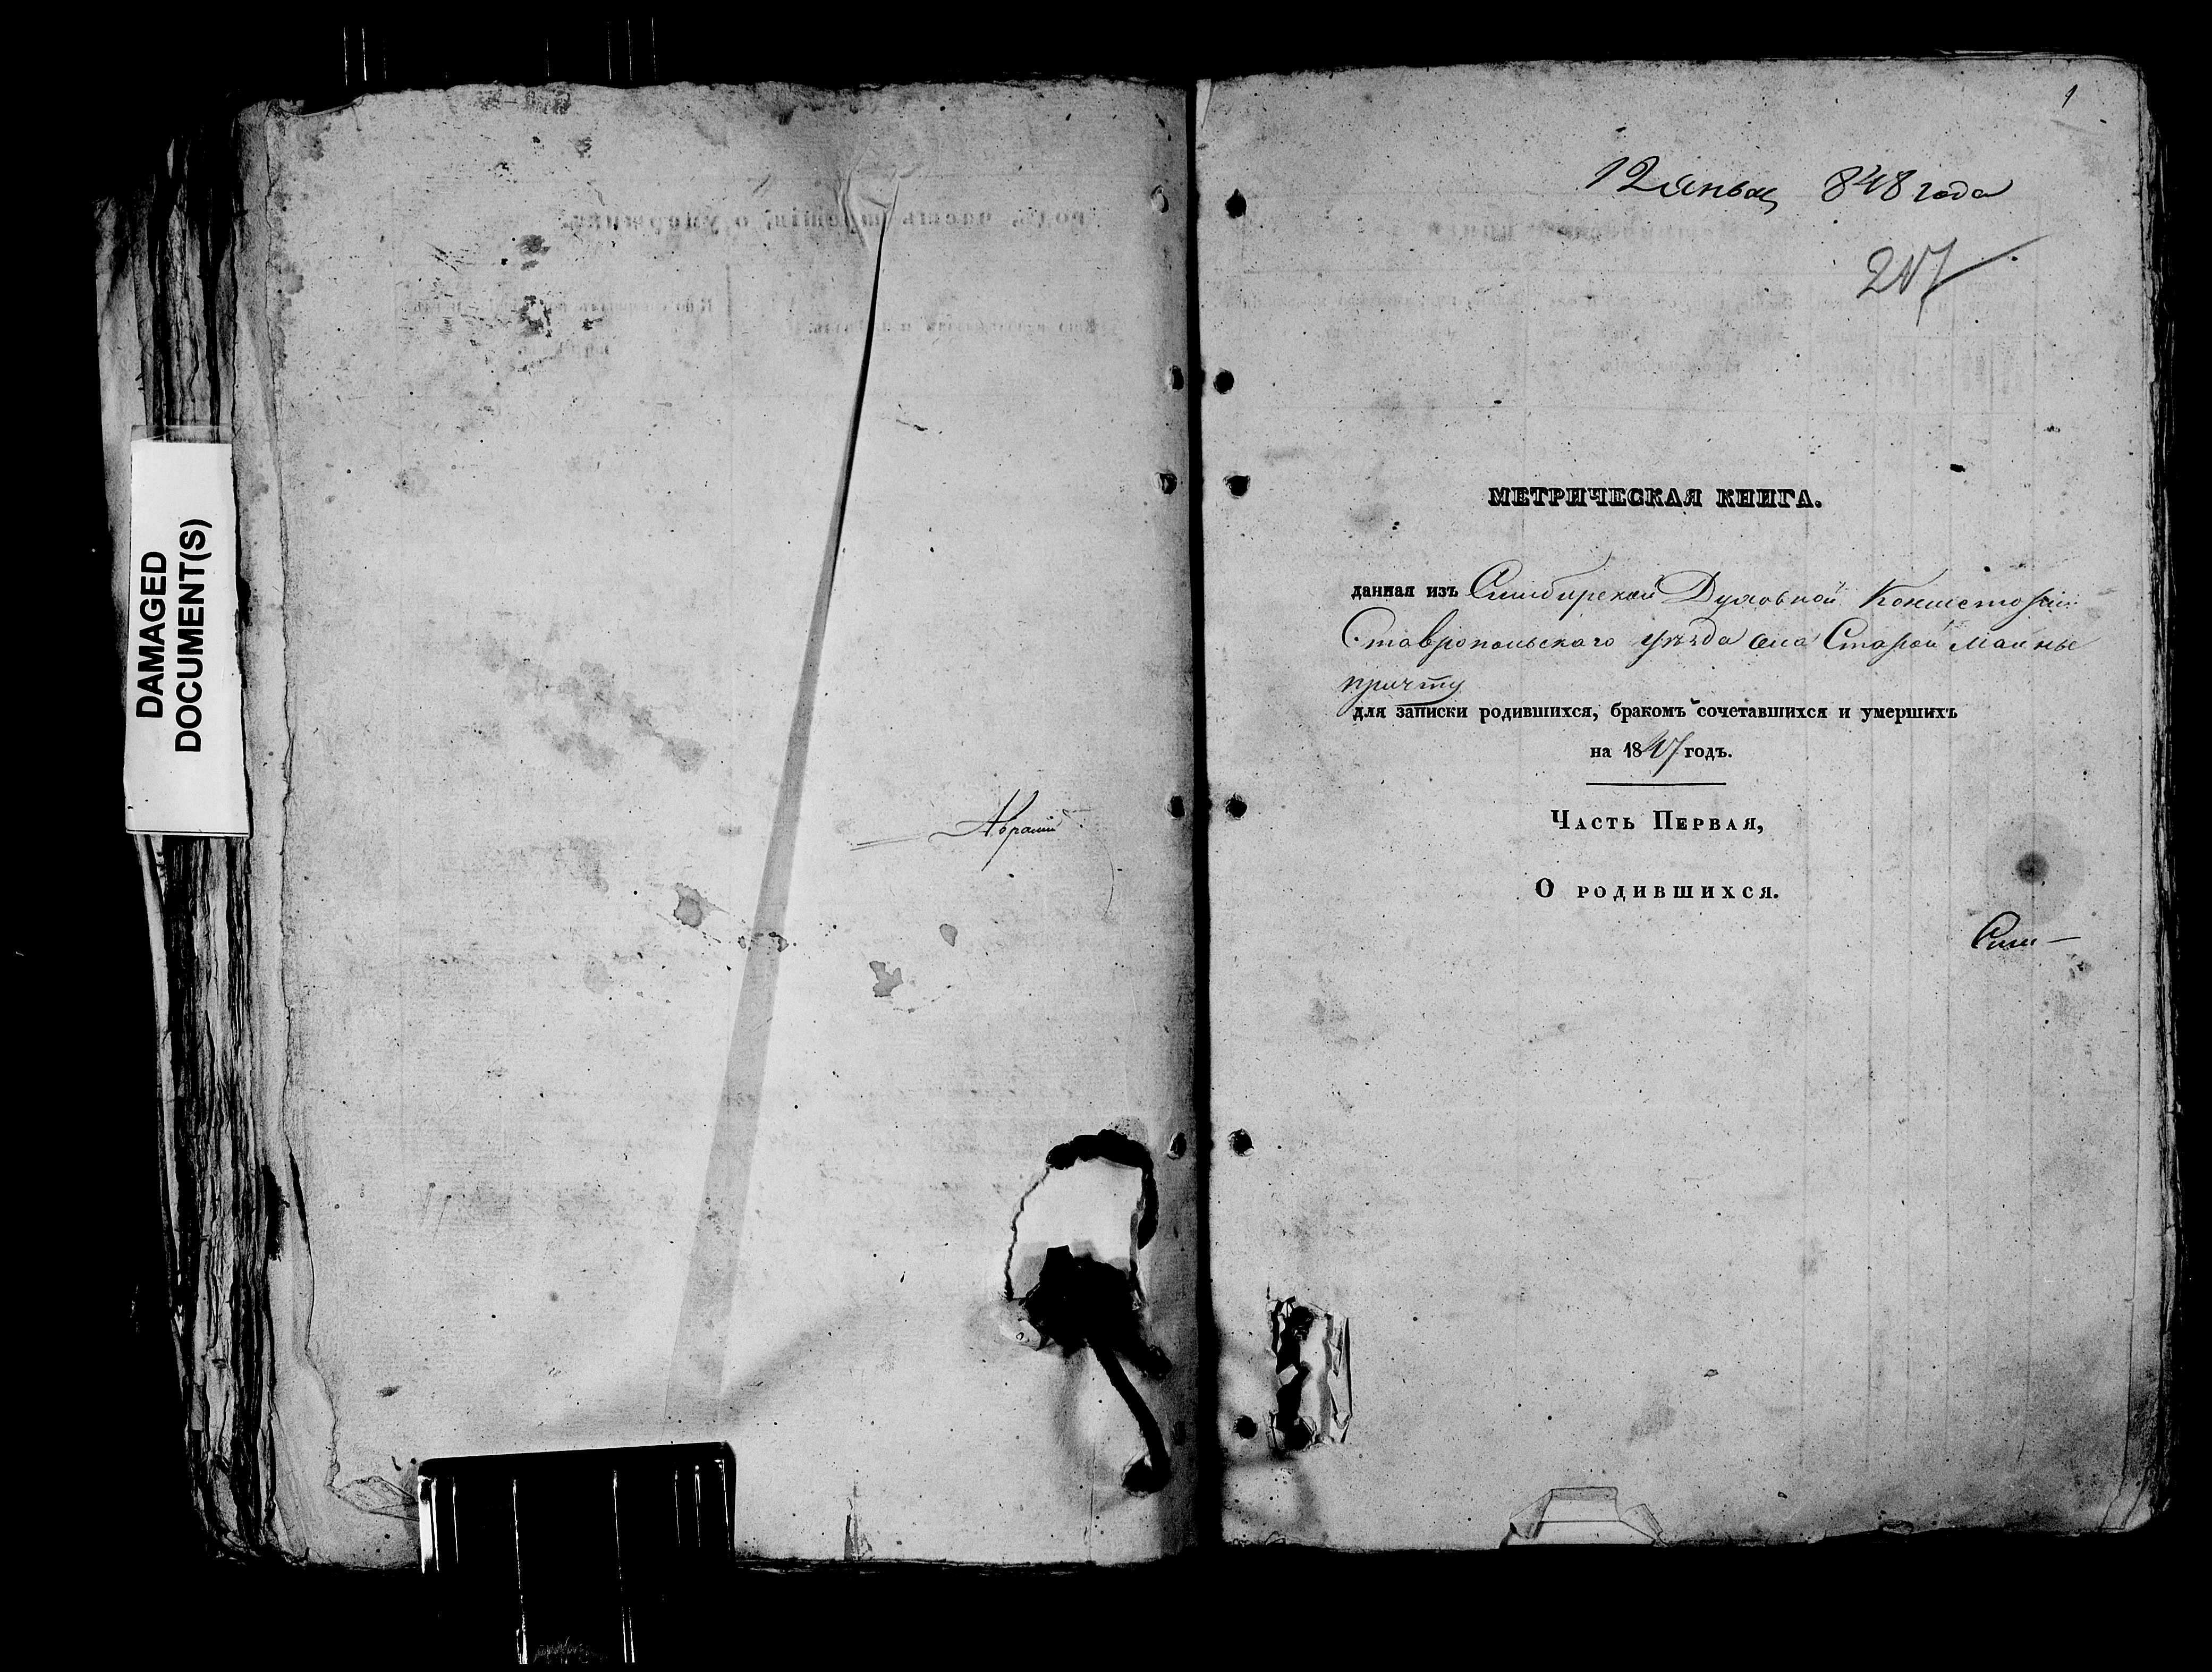 DAMAGED
DOCUMENT(S)
1
12 Янвы 848 года
217
МЕТРИЧЕСКАЯ КНИГА.
данная изъ Симбирской Духовной Консисторіи
Ставропольскаго уѣзда села Старой Маины
причту
для записки родившихся, бракомъ сочетавшихся и умершихъ
на 1847 годъ.
Часть Первая,
О родившихся.
Сим-